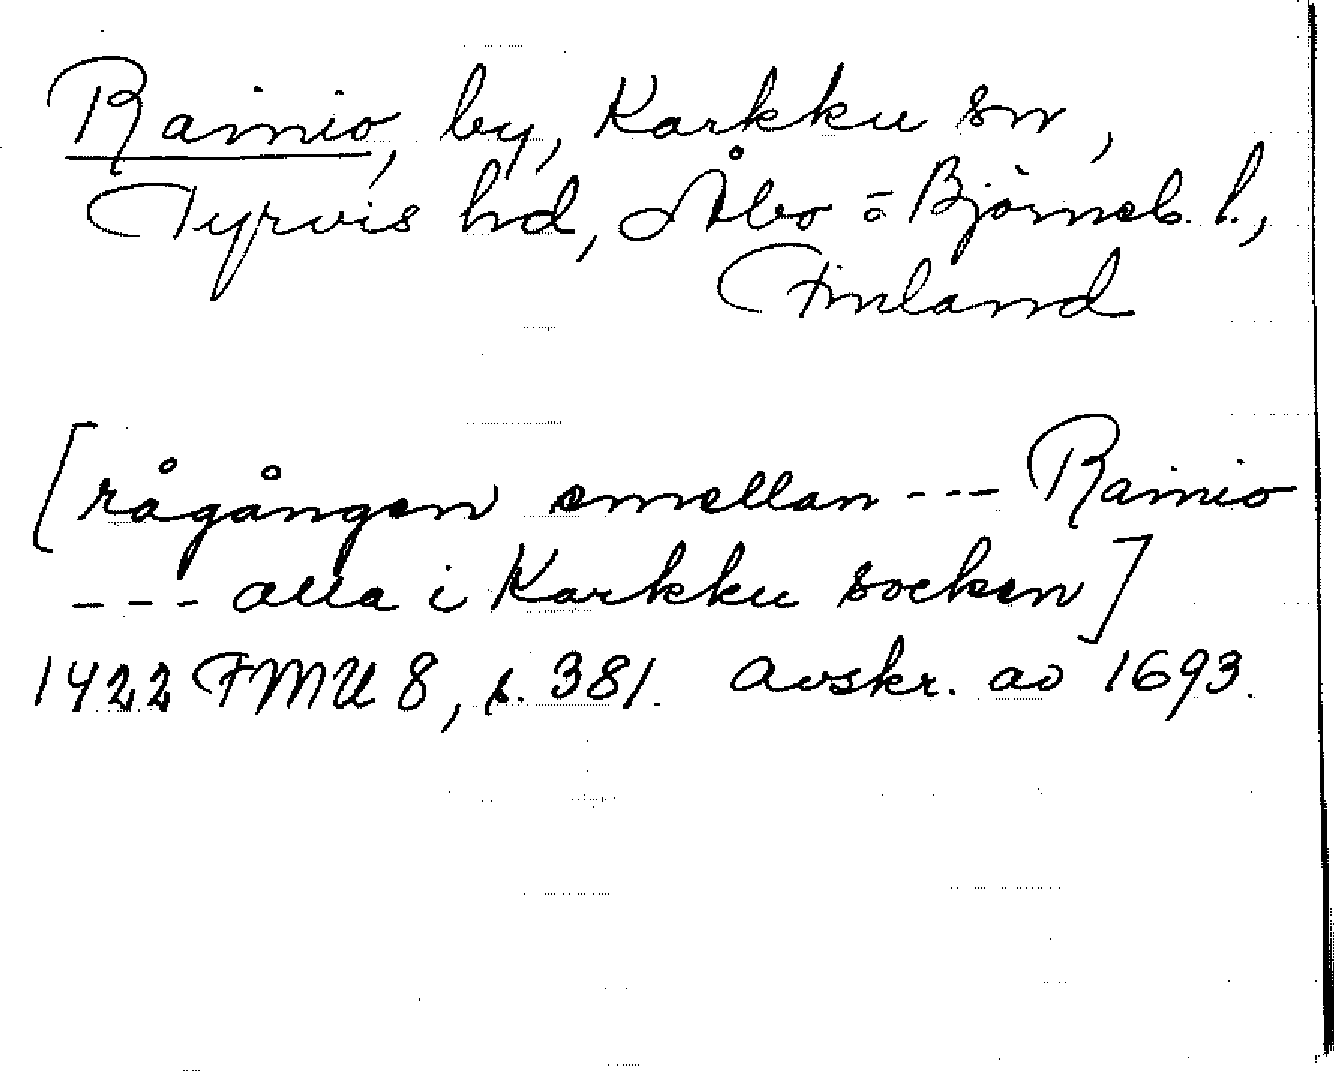 Rainio, by, Karkku sn,
Tyrvis hd, Åbo = Björneb. l.,
Finland
[rågången emellan --- Rainio
--- alla i Karkku socken]
1422 FMU 8, s. 381. Avskr. av 1693.